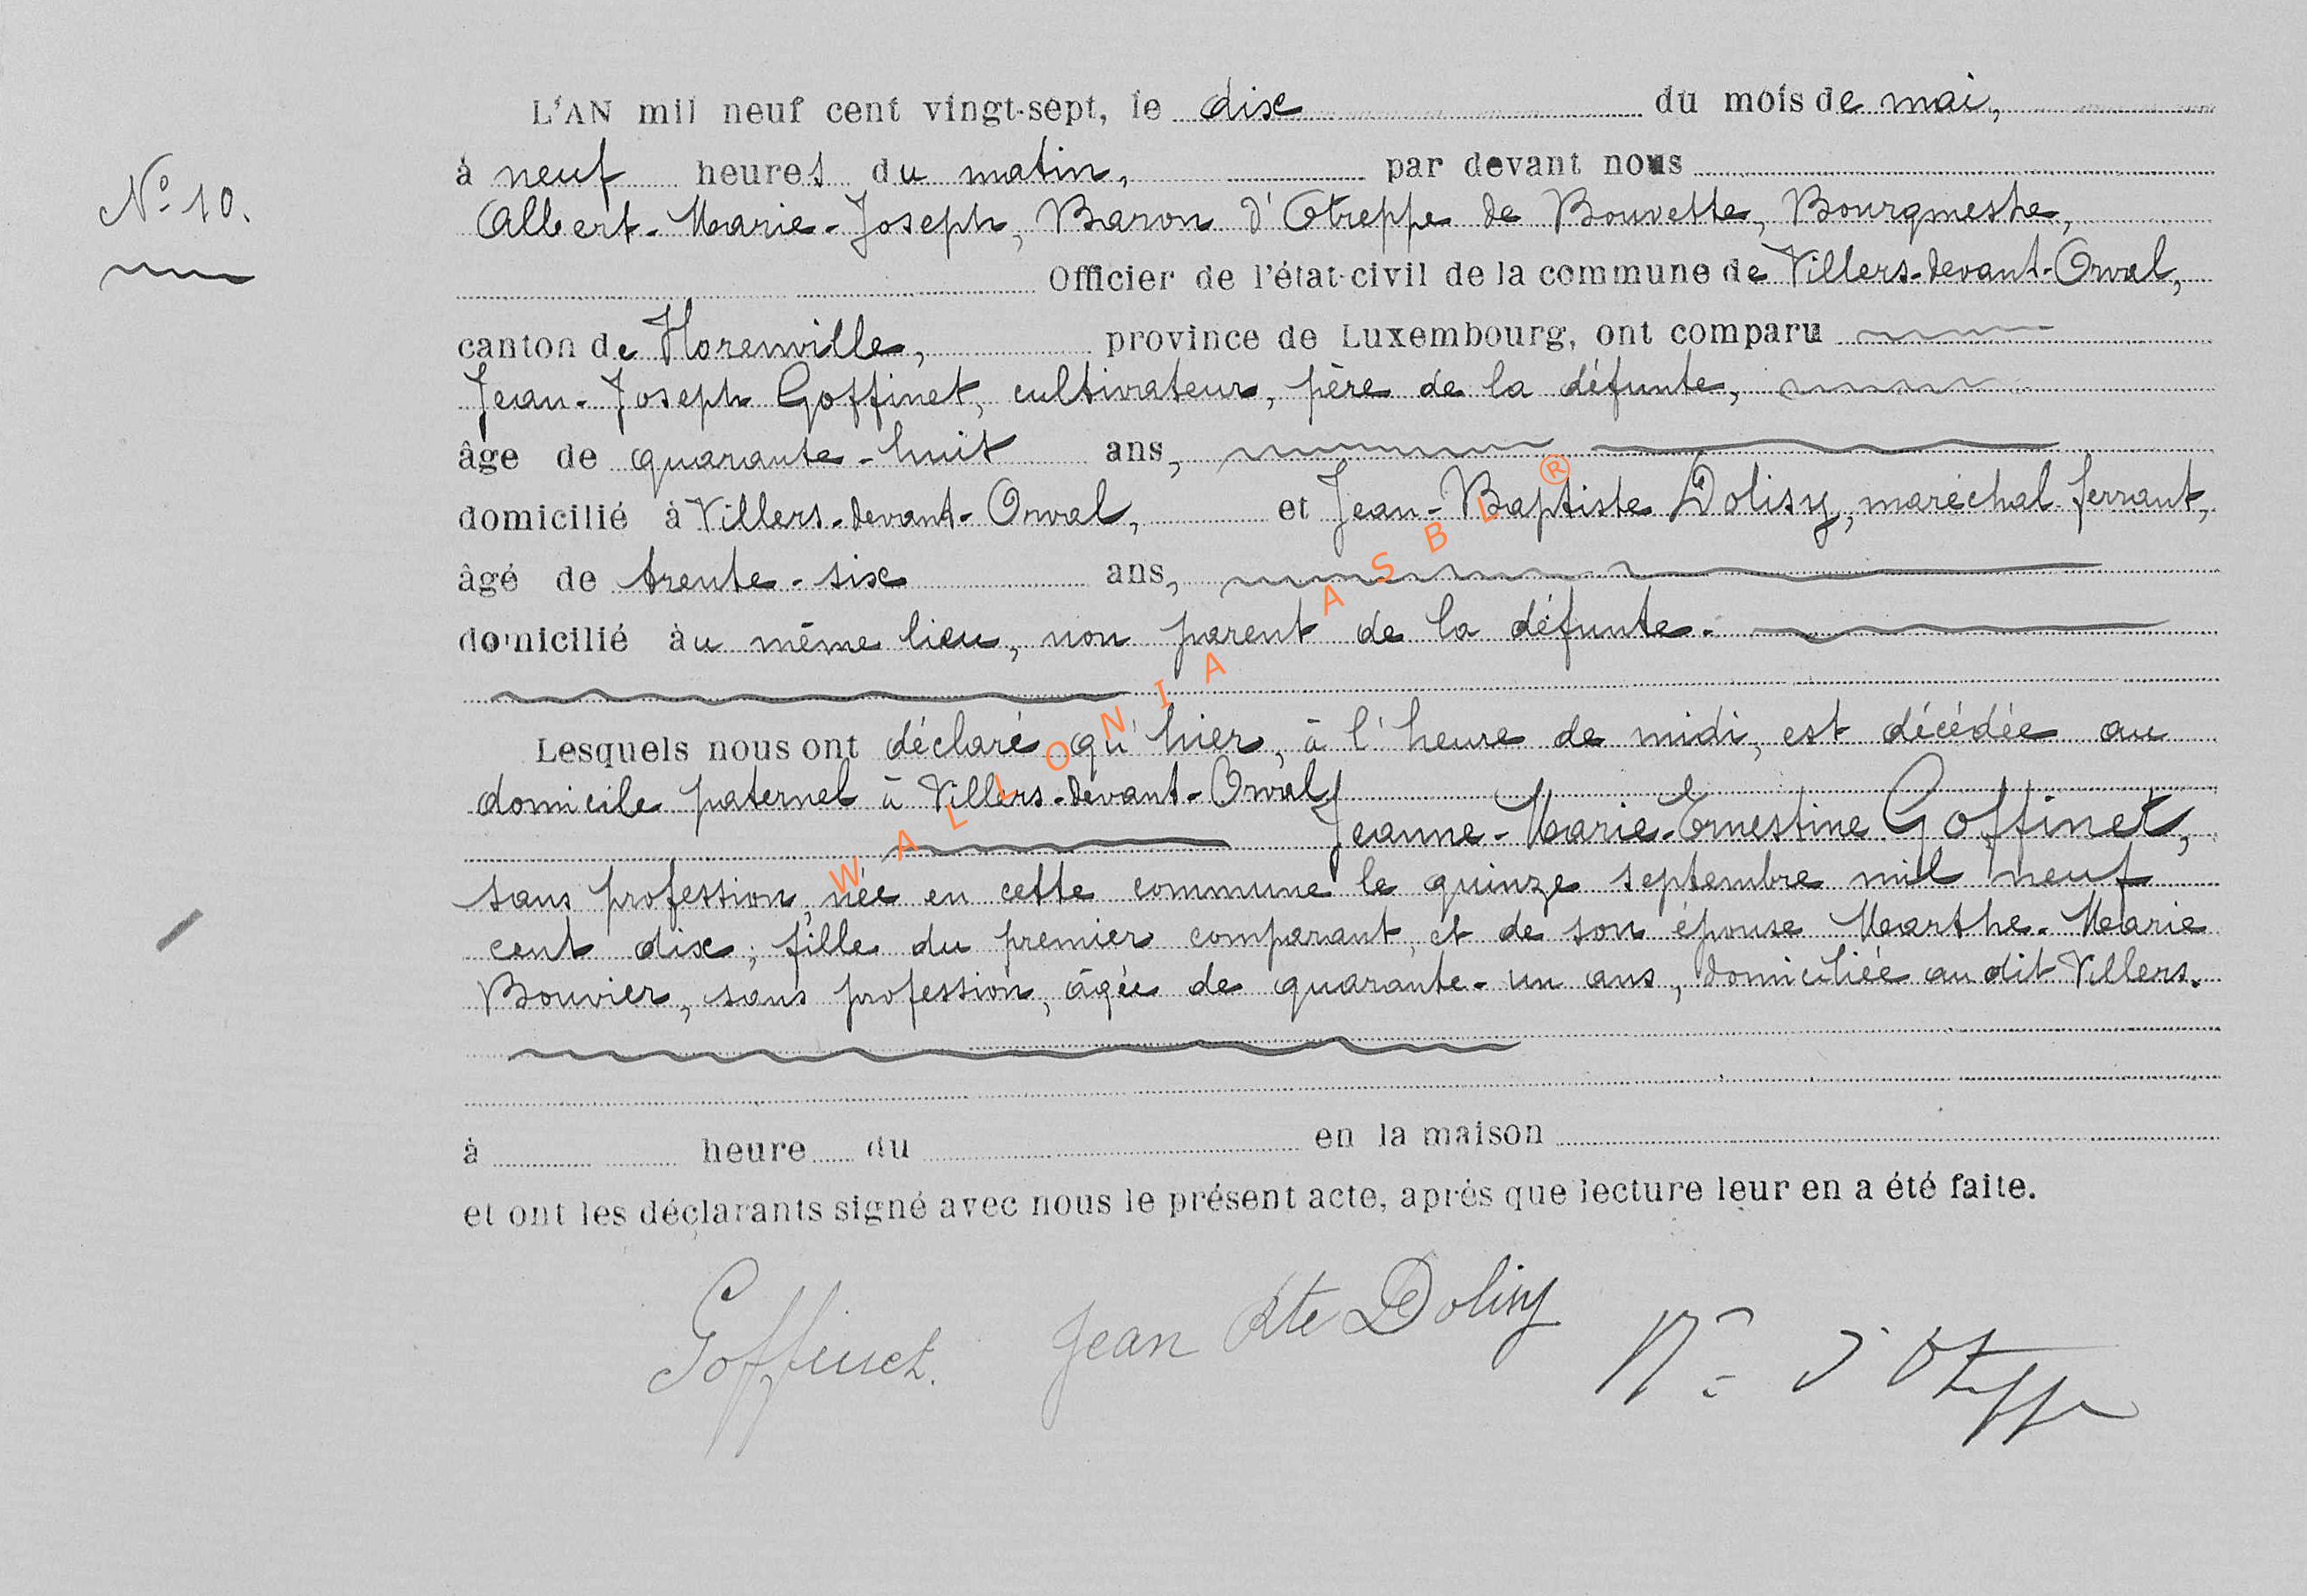 L'AN mil neuf cent vingt-sept, le dix du mois de mai,
N° 10.
à neuf heures du matin, par devant nous
Albert-Marie-Joseph, Baron d'Otreppe de Bouvette, Bourgmestre,
Officier de l'état-civil de la commune de Villers-devant-Orval,
canton de Florenville, province de Luxembourg, ont comparu
Jean-Joseph Goffinet, cultivateur, père de la défunte,
âge de quarante-huit ans,
domicilié à Villers-devant-Orval, et Jean-Baptiste Dolisy, maréchal-ferrant,
âgé de trente-six ans,
domicilié au même lieu, non parent de la défunte.
Lesquels nous ont déclaré qu'hier, à l'heure de midi, est décédée au
domicile paternel à Villers-devant-Orval,
Jeanne-Marie-Ernestine Goffinet,
sans profession, née en cette commune le quinze septembre mil neuf
cent dix; fille du premier comparant, et de son épouse Marthe-Marie
Bouvier, sans profession, âgée de quarante-un ans, domiciliée au dit Villers.
à heure du en la maison
et ont les déclarants signé avec nous le présent acte, après que lecture leur en a été faite.
Goffinet. Jean Bte Dolisy d'Otreppe
WALLONIA ASBL ®